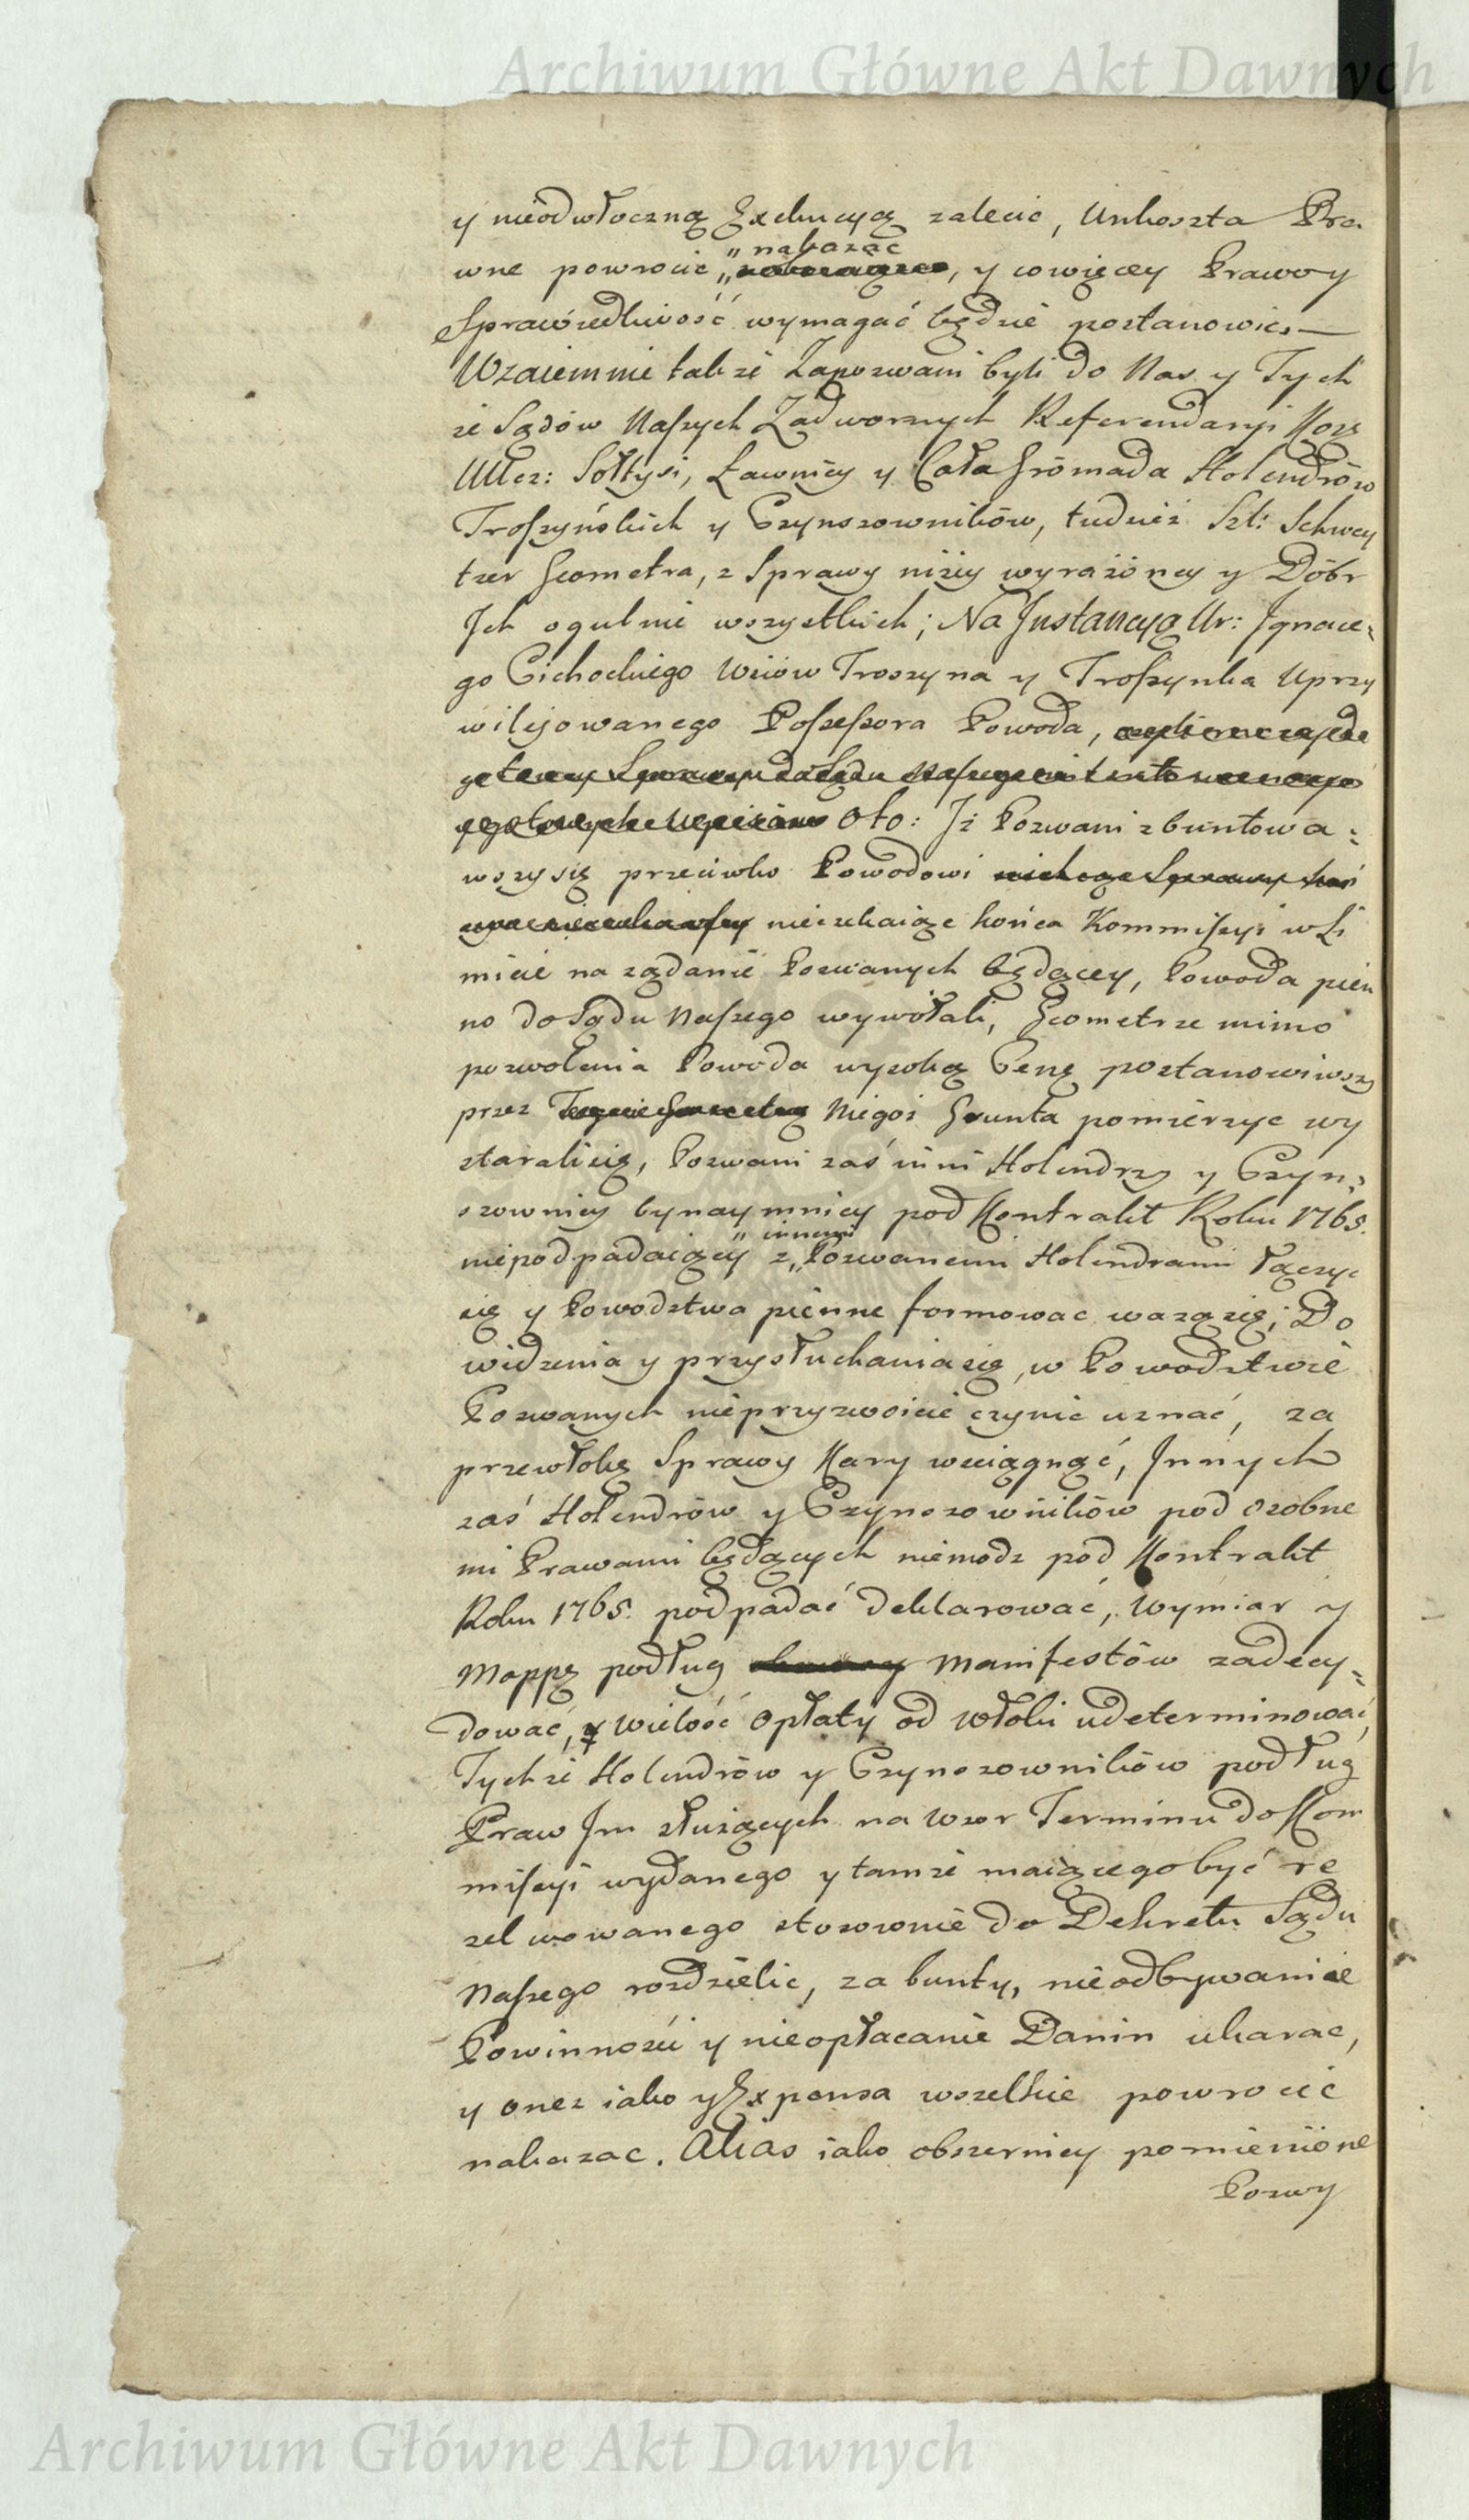 Archiwum Główne Akt Dawnych
y nieodwłoczną Exekucyą zalecic, Unkoszta Pra
„nakazac
wne powrocic „, y cowięcey Prawo y
Sprawiedliwość wymagać będzie postanowic. —
Wzaiemnie takze Zapozwani byli do Nas y Tych
ze Sądów Naszych Zadwornych Referendaryi Kor:
Ucz: Sołtysi, Ławnicy y Cała Gromada Holendrów
Troszyńskich y Czynszowników, tudzież Szl: Schwey
tzer Geometra, z Sprawy niżey wyrażoney y Dóbr
Ich ogulnie wszystkich; Na Instancyą Ur: Ignace„
go Cichockiego Wsiow Troszyna y Troszynka Uprzy
wilejowanego Possessora Powoda,
Oto: Iż Pozwani zbuntowa„
wszy się przeciwko Powodowi
nieczekaiąc końca Kommissyi w Li
micie na ządanie Pozwanych będącey, Powoda pien
no do Sądu Naszego wywołali, Geometrze mimo
pozwolenia Powoda wysoką Cenę postanowiwszy
przez Niegoż Grunta pomierzyc wy
starali się, Pozwani zaś inni Holendrzy y Czyn„
szownicy bynaymniey pod Kontrakt Roku 1765.
„innemi
niepodpadaiący z „Pozwanemi Holendrami łączyc
się y Powodztwa pienne formowac wazą się; Do
widzenia y przysłuchania się, w Powodztwie
Pozwanych nieprzyzwoicie czynic uznać, za
przewłokę Sprawy Kary wciągnąć, Innych
zaś Holendrów y Czynszowników pod osobne
mi Prawami będących niemodz pod Kontrakt
Roku 1765. podpadać deklarować, Wymiar y
Mappę podług Manifestów zadecy„
dować, y wielość Opłaty od Włoki udeterminować,
Tychze Holendrów y Czynszowników podług
Praw Im służących na wzor Terminu do Kom
missyi wydanego y tamze maiącego być re
zolwowanego stosownie do Dekretu Sądu
Naszego rozdzielic, za bunty, nieodbywanie
Powinności y nieopłacanie Danin ukarac,
y onez iako y Expensa wszelkie powrocic
nakazac. Alias iako obszerniey pomienione
Pozwy
Archiwum Główne Akt Dawnych